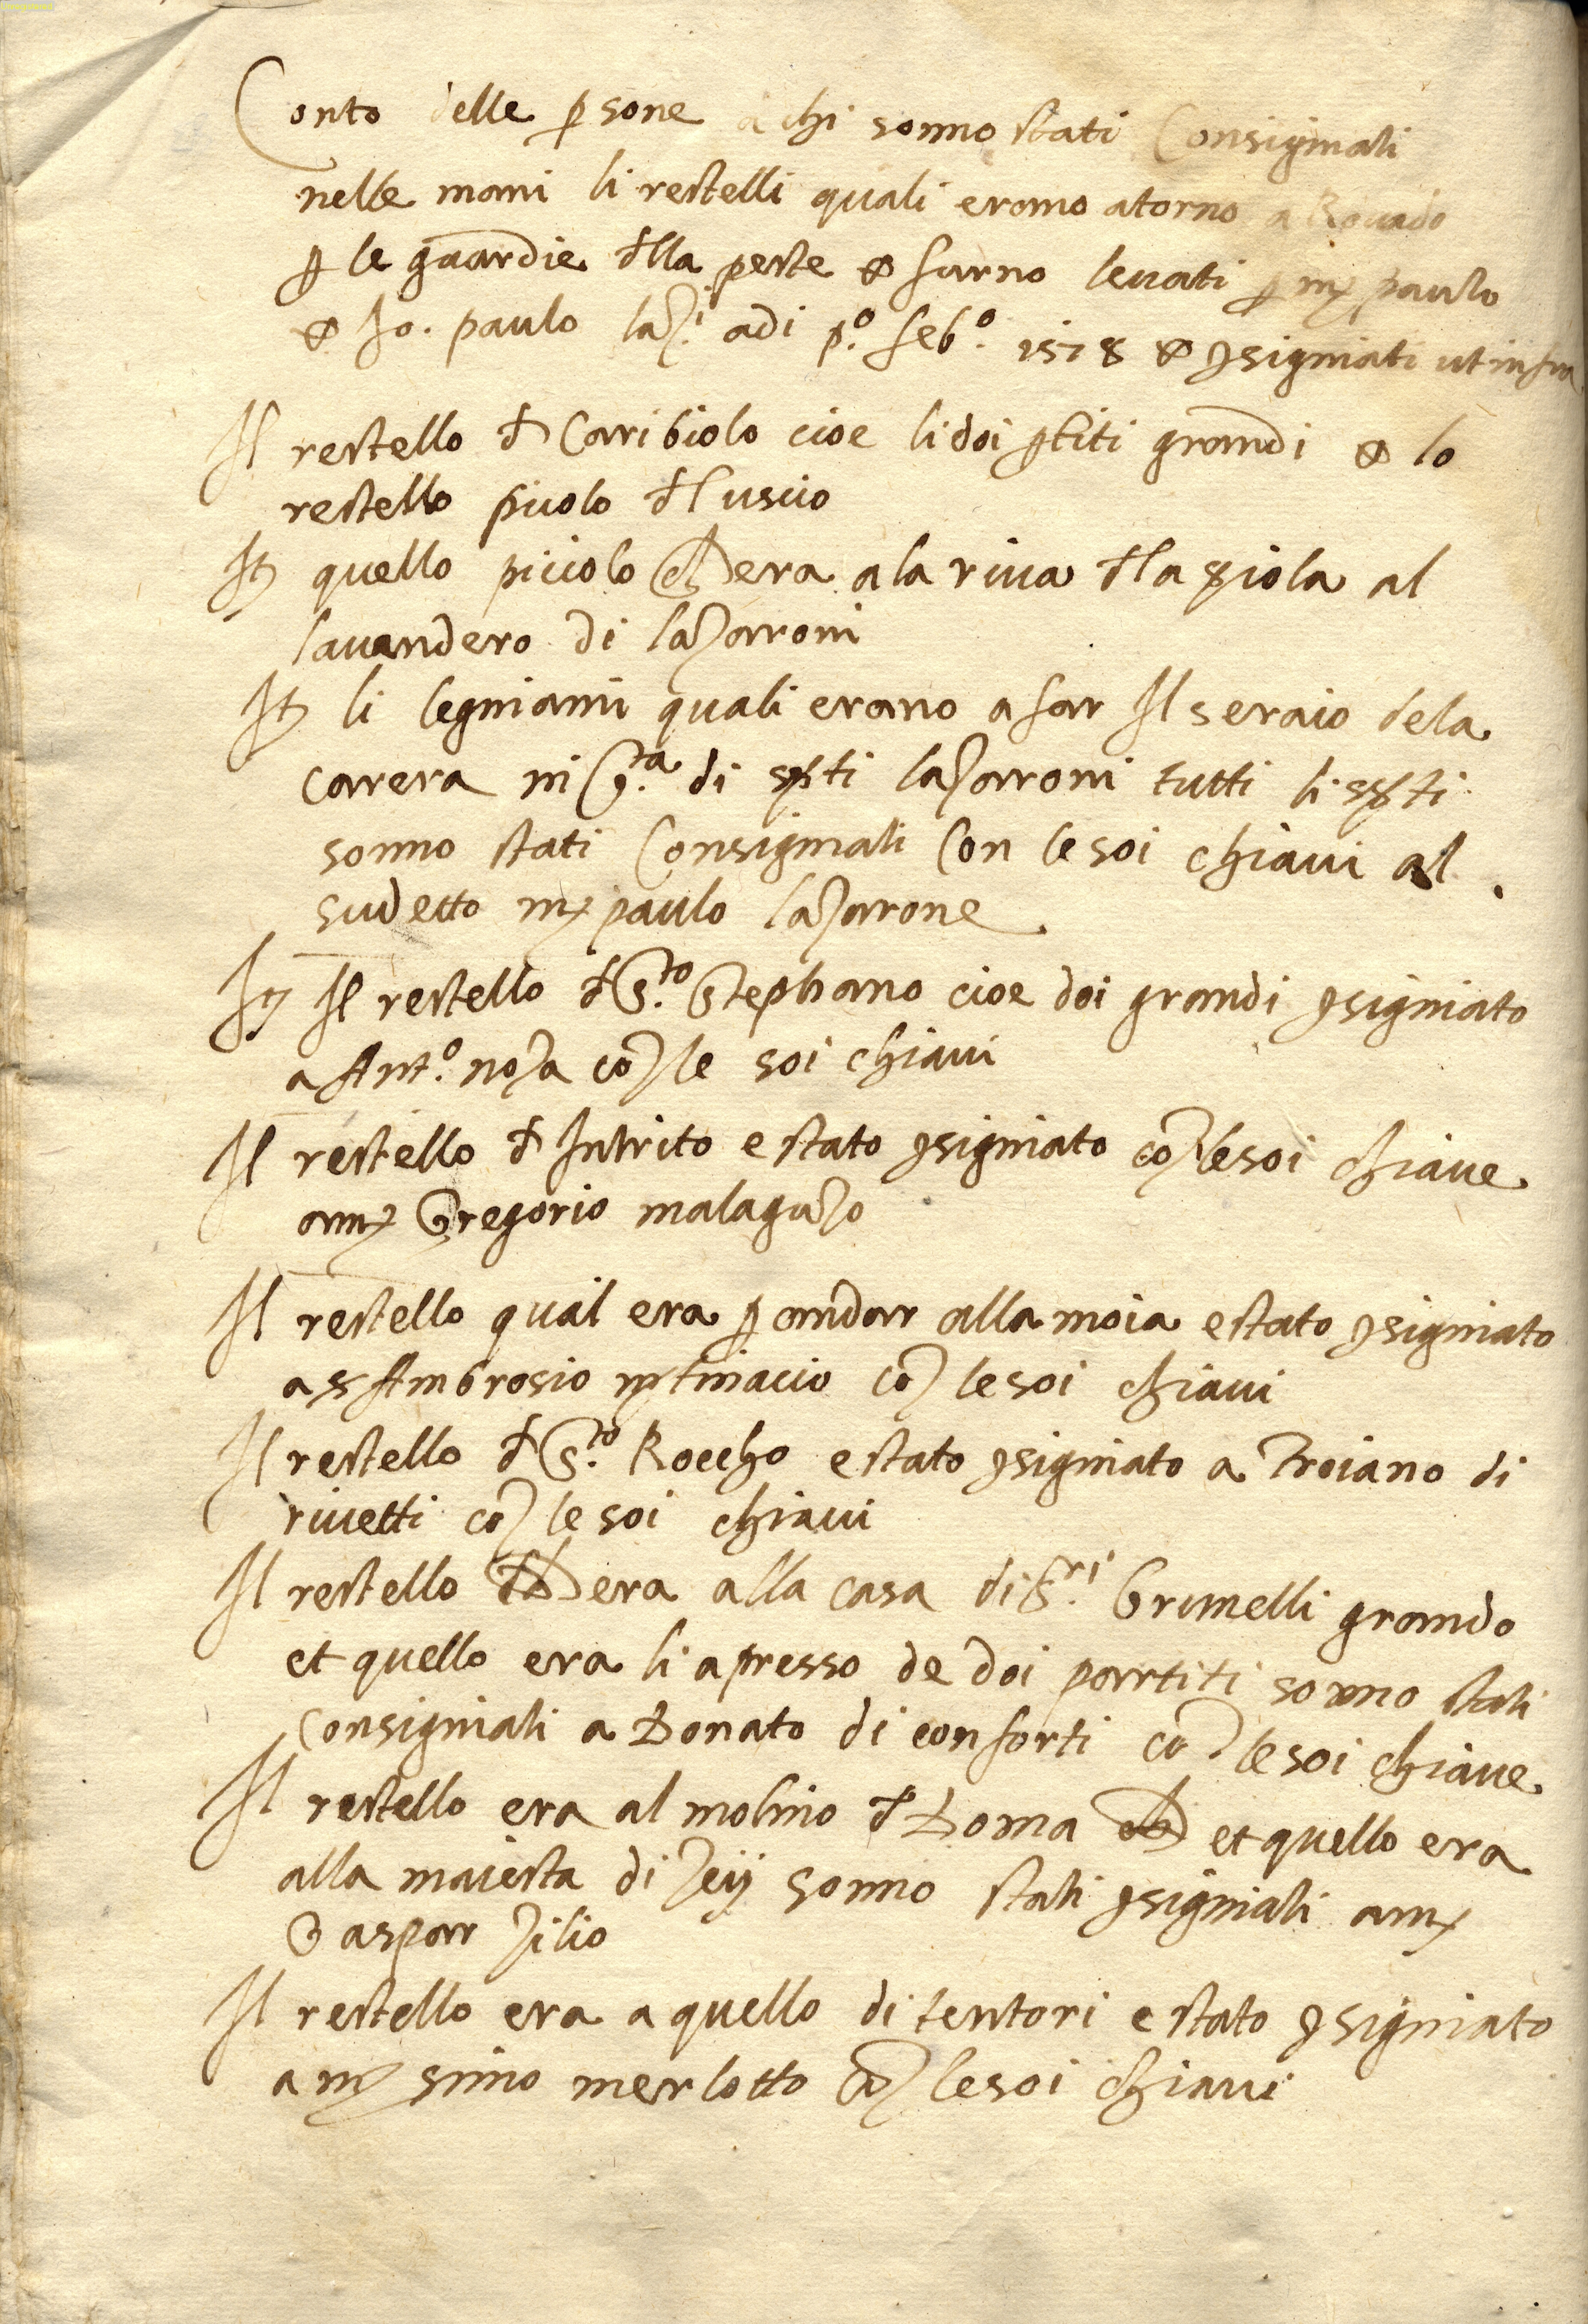 Conto delle psone a chi sonno stati Consigniati
nelle mani li restelli quali erano atorno a Rouado
p le guardie dlla peste & furno leuati p mx paulo
& Jo. paulo laz.i adi p.o feb.o 1578 & 9signiati ut infra
Il restello d Caribiolo cioe li doi ptiti grandi & lo
restello picolo dl uscio
It quello piciolo ch era a la riua dla giola al
lauandero di lazaroni
It li legniami quali erano a far Il seraio dela
carera in G.ta di spti lazaroni tutti li spti
sonno stati Consigniati Con le soi chiaui al
sudetto mx paulo lazarone
It Il restello d S.to Stephano cioe doi grandi 9signiato
a Ant.o noza co le soi chiaui
Il restello d Intrito e stato 9signiato co le soi chiaue
a mx Gregorio malaguzo
Il restello qual era p andar alla moia e stato 9signiato
a s Ambrosio mtinacio co le soi chiaui
Il restello d S.to Roccho e stato 9signiato a Troiano di
riuetti co le soi chiaui
Il restello ch era alla casa di S.ri Brunelli grando
et quello era li apresso de doi partiti sonno stati
Consigniati a Donato di conforti co le soi chiaue
Il restello era al molino d Doma et quello era
alla maiesta di zeij sonno stati 9signiati a mx
Gaspar zilio
Il restello era a quello di tentori e stato 9signiato
a mx simo merlotto co le soi chiaui